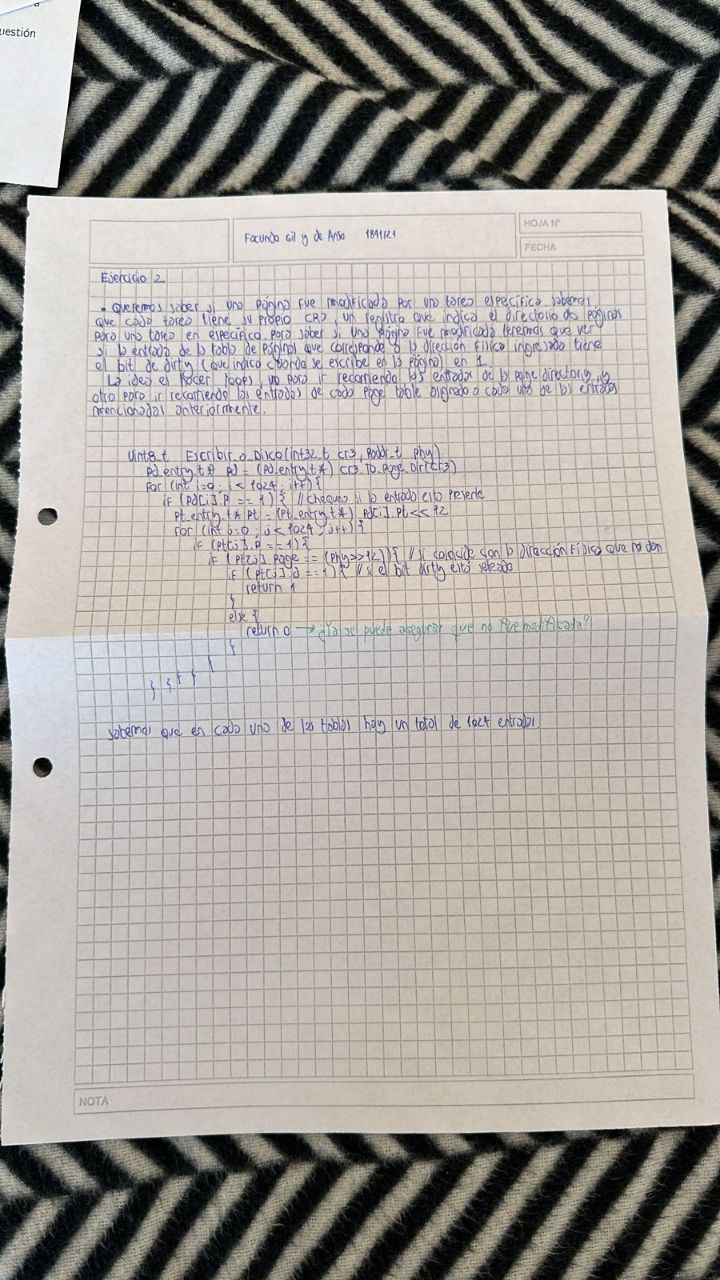 uestión
Facundo Gil y de Anso 1841/21
HOJA N°
FECHA
Ejercicio 2
• Queremos saber si una página fue modificada por una tarea específica. Sabemos
que cada tarea tiene su propio CR3, un registro que indica el directorio de páginas
para una tarea en específico. Para saber si una página fue modificada tenemos que ver
si la entrada de la tabla de páginas que corresponde a la dirección física ingresada tiene
el bit de dirty (que indica cuando se escribe en la página) en 1.
La idea es hacer loops, uno para ir recorriendo las entradas de la page directory, y
otro para ir recorriendo las entradas de cada page table asignada a cada una de las entradas
mencionadas anteriormente.
Uint8_t Escribir_a_Disco(int32_t cr3, paddr_t phy)
pd_entry_t* pd = (pd_entry_t*) CR3_TO_PAGE_DIR(cr3)
For (int i=0; i < 1024; i++){
if (pd[i].P == 1){ // chequeo si la entrada está presente
pt_entry_t* pt = (pt_entry_t*) pd[i].pt<<12
For (int j=0, j<1024; j++){
if (pt[j].P == 1){
if (pt[j].page == (phy>>12)){ // si coincide con la dirección física que me dan
if (pt[j].d == 1){ // si el bit dirty está seteado
return 1
}
else {
return 0 → ¿Ya se puede asegurar que no fue modificada?
}
}
} } } }
Sabemos que en cada una de las tablas hay un total de 1024 entradas
NOTA